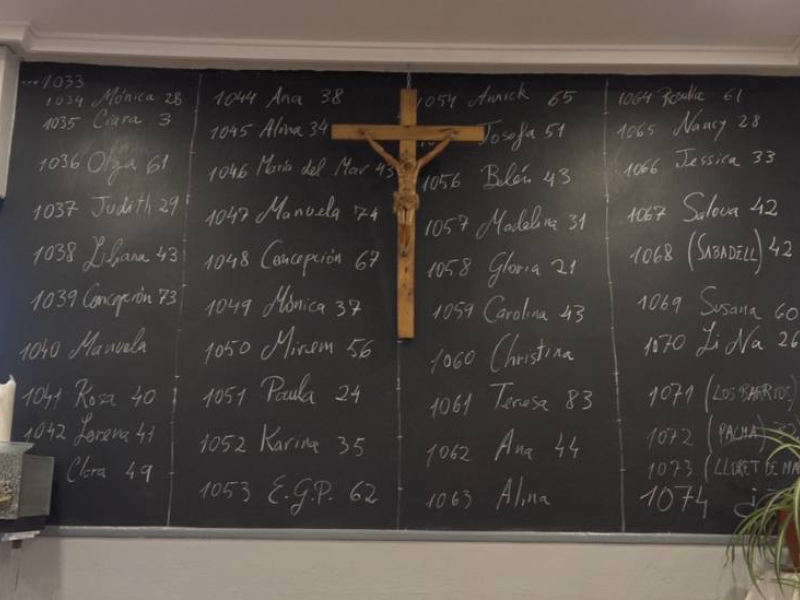 ...1033
1034 Mónica 28
1035 Ciara 3
1036 Olga 61
1037 Judith 29
1038 Liliana 43
1039 Concepción 73
1040 Manuela
1041 Rosa 40
1042 Lorena 41
Clara 49
1044 Ana 38
1045 Alina 34
1046 María del Mar 43
1047 Manuela 74
1048 Concepción 67
1049 Mónica 37
1050 Miriem 56
1051 Paula 24
1052 Karina 35
1053 E.G.P. 62
1054 Annick 65
Josefa 51
1056 Belén 43
1057 Madelina 31
1058 Gloria 21
1059 Carolina 43
1060 Christina
1061 Teresa 83
1062 Ana 44
1063 Alina
1064 Rosalia 61
1065 Nancy 28
1066 Jessica 33
1067 Saloua 42
1068 (SABADELL) 42
1069 Susana 60
1070 Li Na 26
1071 (LOS BARRIOS)
1072 (PALMA)
1073 (LLORET DE MA
1074